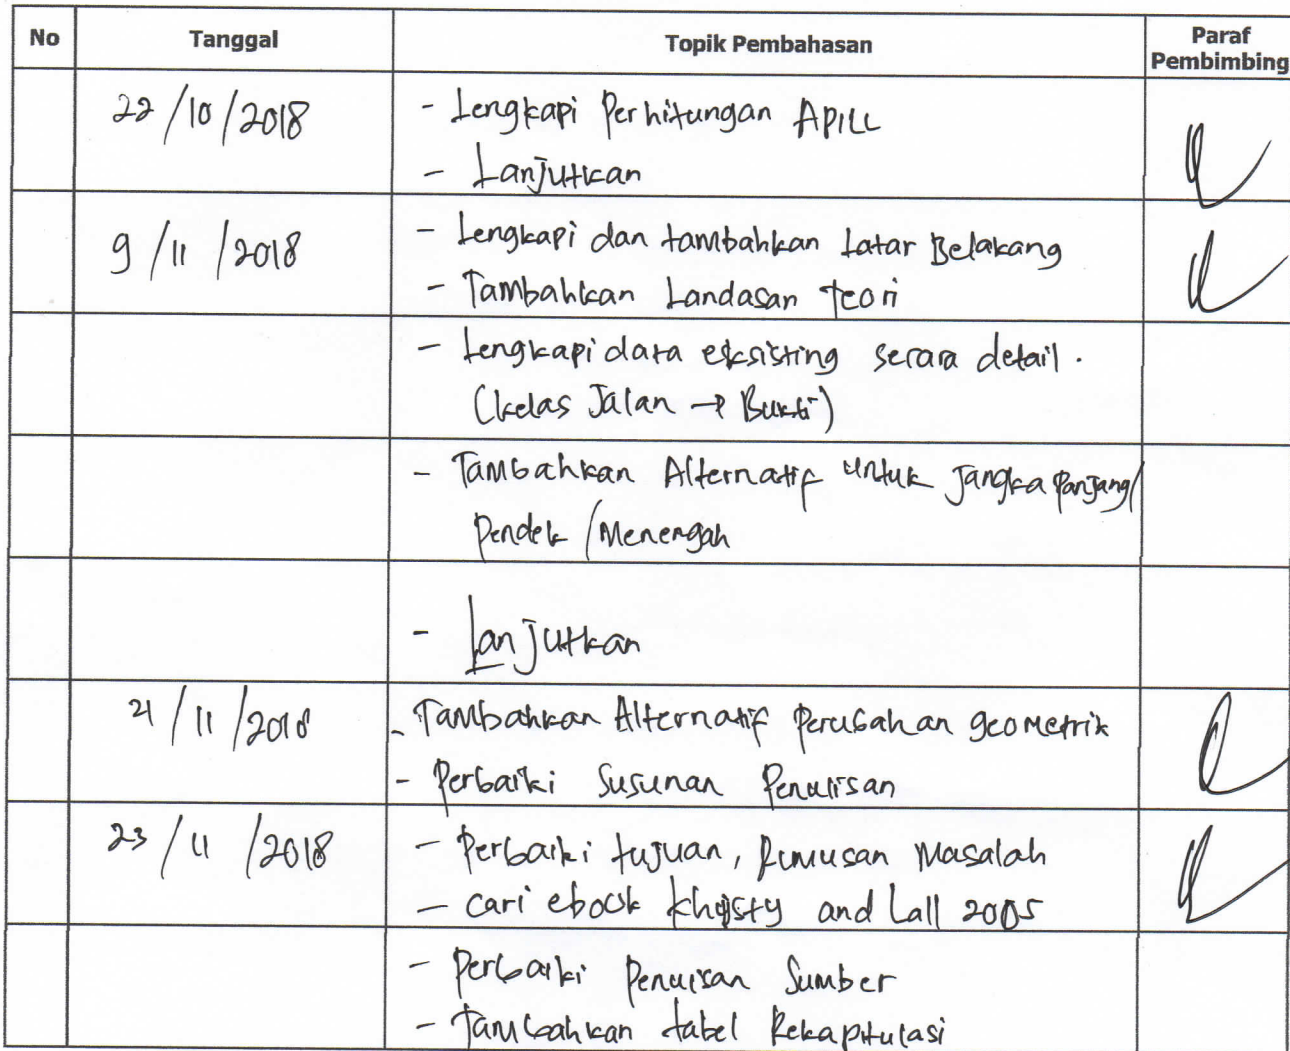 No Tanggal Topik Pembahasan Paraf Pembimbing
22/10/2018 - Lengkapi Perhitungan APILL
- Lanjutkan
9/11/2018 - Lengkapi dan tambahkan Latar Belakang
- Tambahkan Landasan teori
- Lengkapi data eksisting secara detail.
(kelas Jalan → Bukti)
- Tambahkan Alternatif untuk Jangka Panjang/
Pendek/Menengah
- Lanjutkan
21/11/2018 - Tambahkan Alternatif Perubahan geometrik
- Perbaiki Susunan Penulisan
23/11/2018 - Perbaiki tujuan, Rumusan Masalah
- cari ebook Khisty and Lall 2005
- Perbaiki Penulisan Sumber
- Tambahkan tabel Rekapitulasi